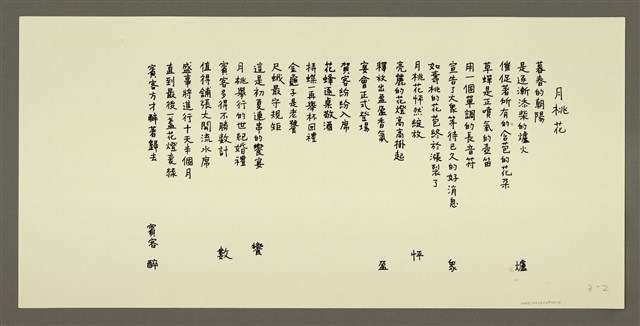 月桃花
暮春的朝陽
是逐漸添柴的爐火
催促著所有的含苞的花朵
草蟬是正噴氣的壺笛
用一個單調的長音符
宣告了大眾等待已久的好消息
如壽桃的花苞終於漲裂了
月桃花怦然綻放
亮麗的花燈高高掛起
釋放出盈盈香氣
宴會正式登場
賀客紛紛入席
花蜂逐桌敬酒
挵蝶一再舉杯回禮
金龜子是老饕
尺蛾最守規矩
這是初夏連串的饗宴
月桃舉行的世紀婚禮
賓客多得不勝數計
值得鋪張大開流水席
盛事將進行十天半個月
直到最後一盞花燈萎綠
賓客方才醉著歸去
爐
眾
怦
盈
饗
數
賓客 醉
2-2